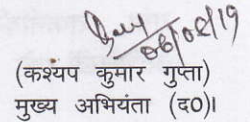 06/02/19
(कश्यप कुमार गुप्ता)
मुख्य अभियंता (द0)।